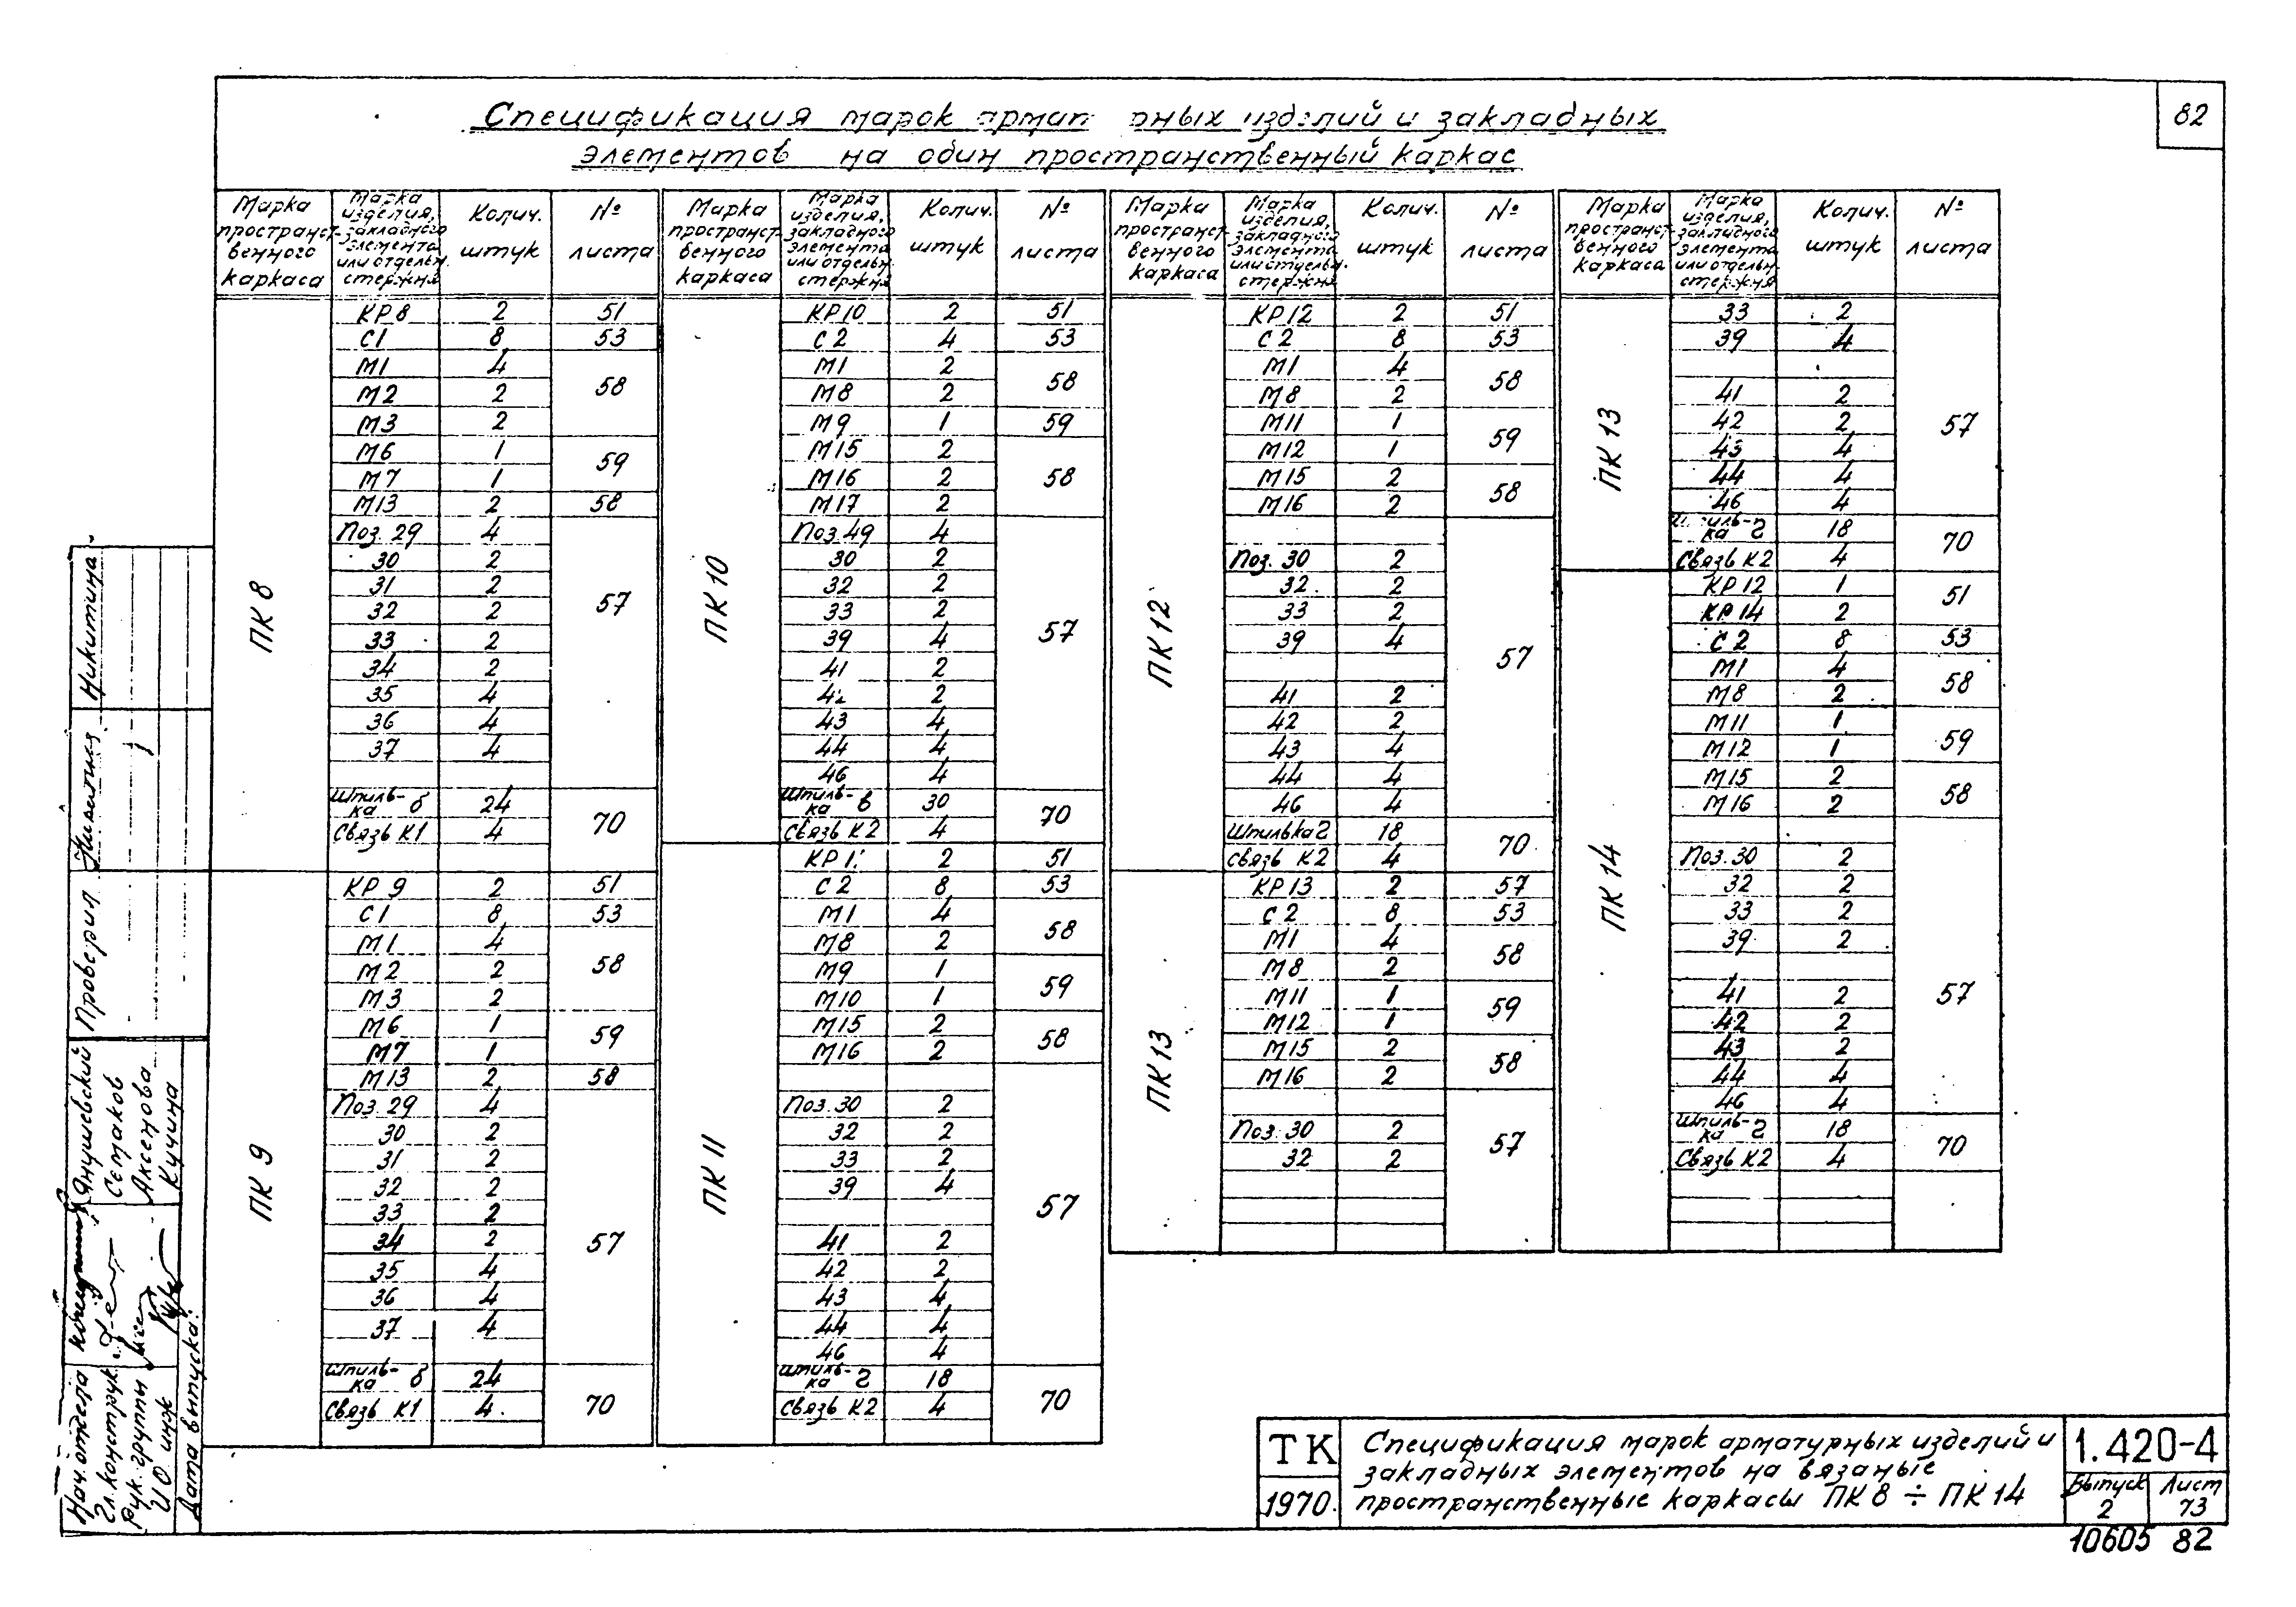 82
Спецификация марок армат рных изделий и закладных
элементов на один пространственный каркас
Марка пространст- венного каркаса | Марка изделия, закладного элемента или отдельн. стержня | Колич. штук | № листа
ПК 8
КР 8 2 51
С1 8 53
М1 4 58
М2 2
М3 2
М6 1 59
М7 1
М13 2 58
Поз. 29 4 57
30 2
31 2
32 2
33 2
34 2
35 4
36 4
37 4
Шпиль- ка б 24 70
Связь К1 4
ПК 9
КР 9 2 51
С1 8 53
М1 4 58
М2 2
М3 2
М6 1 59
М7 1
М13 2 58
Поз. 29 4 57
30 2
31 2
32 2
33 2
34 2
35 4
36 4
37 4
Шпиль- ка б 24 70
Связь К1 4
Марка пространст- венного каркаса | Марка изделия, закладного элемента или отдельн. стержня | Колич. штук | № листа
ПК 10
КР10 2 51
С2 4 53
М1 2 58
М8 2
М9 1 59
М15 2 58
М16 2
М17 2
Поз. 49 4 57
30 2
32 2
33 2
39 4
41 2
42 2
43 4
44 4
46 4
Шпиль- ка в 30 70
Связь К2 4
ПК 11
КР 1 2 51
С2 8 53
М1 4 58
М8 2
М9 1 59
М10 1
М15 2 58
М16 2
Поз. 30 2 57
32 2
33 2
39 4
41 2
42 2
43 4
44 4
46 4
Шпиль- ка г 18 70
Связь К2 4
Марка пространст- венного каркаса | Марка изделия, закладного элемента или отдельн. стержня | Колич. штук | № листа
ПК 12
КР12 2 51
С2 8 53
М1 4 58
М8 2
М11 1 59
М12 1
М15 2 58
М16 2
Поз. 30 2 57
32 2
33 2
39 4
41 2
42 2
43 4
44 4
46 4
Шпилька г 18 70
Связь К2 4
ПК 13
КР13 2 57
С2 8 53
М1 4 58
М8 2
М11 1 59
М12 1
М15 2 58
М16 2
Поз. 30 2 57
32 2
Марка пространст- венного каркаса | Марка изделия, закладного элемента или отдельн. стержня | Колич. штук | № листа
ПК 13
33 2 57
39 4
41 2
42 2
43 4
44 4
46 4
Шпиль- ка г 18 70
Связь К2 4
ПК 14
КР12 1 51
КР14 2
С2 8 53
М1 4 58
М8 2
М11 1 59
М12 1
М15 2 58
М16 2
Поз. 30 2 57
32 2
33 2
39 2
41 2
42 2
43 2
44 4
46 4
Шпиль- ка г 18 70
Связь К2 4
Проверил Никитина
Нач. отдела Янушевский
Гл. конструк. Семаков
Рук. группы Аксенова
И О инж Кучина
Дата выпуска:
ТК
1970.
Спецификация марок арматурных изделий и
закладных элементов на вязаные
пространственные каркасы ПК 8 ÷ ПК 14
1.420-4
Выпуск 2
Лист 73
10605 82